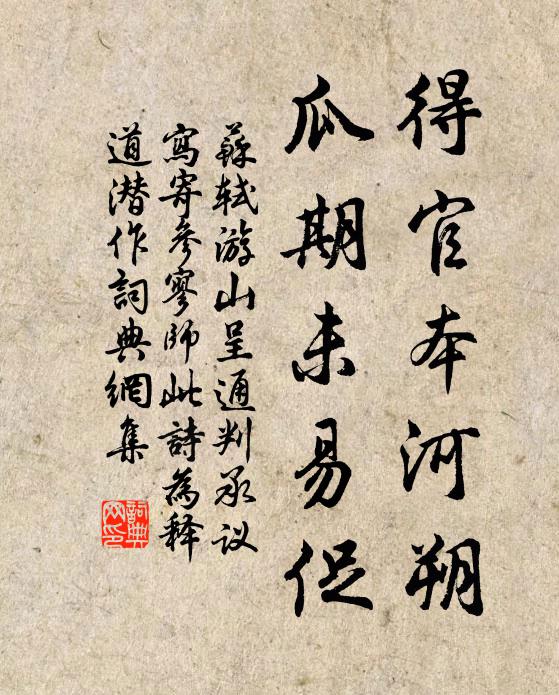 得官本河朔
瓜期未易促
蘇轼游山呈通判承议
寫寄參寥師此詩為释
道潜作詞典網集
詞典网印